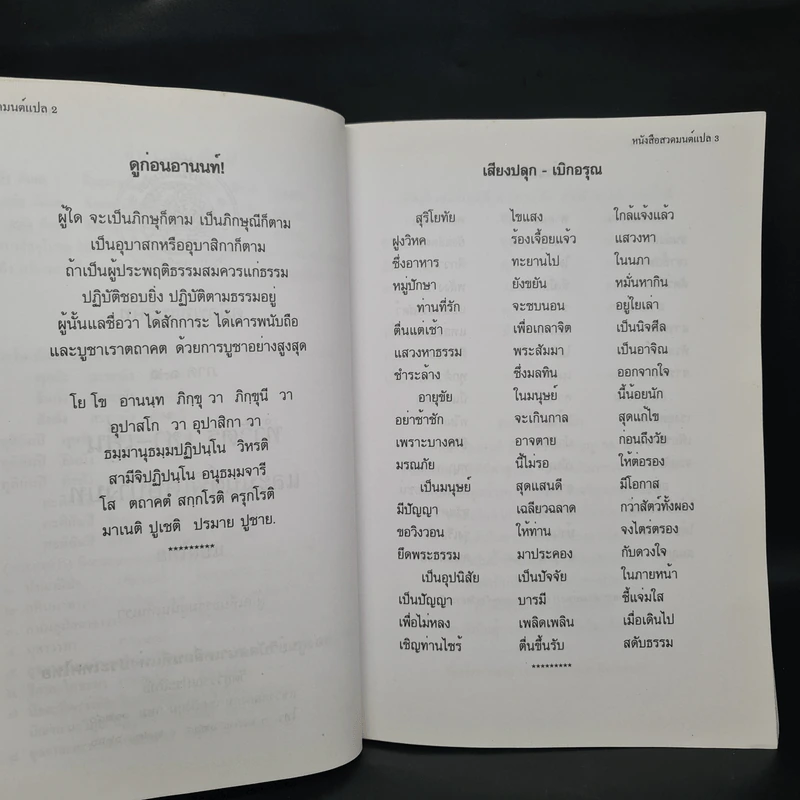 ดมนต์แปล 2
ดูก่อนอานนท์!
ผู้ใด จะเป็นภิกษุก็ตาม เป็นภิกษุณีก็ตาม
เป็นอุบาสกหรืออุบาสิกาก็ตาม
ถ้าเป็นผู้ประพฤติธรรมสมควรแก่ธรรม
ปฏิบัติชอบยิ่ง ปฏิบัติตามธรรมอยู่
ผู้นั้นแลชื่อว่า ได้สักการะ ได้เคารพนับถือ
และบูชาเราตถาคต ด้วยการบูชาอย่างสูงสุด
โย โข อานนฺท ภิกฺขุ วา ภิกฺขุนี วา
อุปาสโก วา อุปาสิกา วา
ธมฺมานุธมฺมปฏิปนฺโน วิหรติ
สามีจิปฏิปนฺโน อนุธมฺมจารี
โส ตถาคตํ สกฺกโรติ ครุกโรติ
มาเนติ ปูเชติ ปรมาย ปูชาย.
*********
หนังสือสวดมนต์แปล 3
เสียงปลุก - เบิกอรุณ
สุริโยทัย ไขแสง ใกล้แจ้งแล้ว
ฝูงวิหค ร้องเจื้อยแจ้ว แสวงหา
ซึ่งอาหาร ทะยานไป ในนภา
หมู่ปักษา ยังขยัน หมั่นหากิน
ท่านที่รัก จะซบนอน อยู่ไยเล่า
ตื่นแต่เช้า เพื่อเกลาจิต เป็นนิจศีล
แสวงหาธรรม พระสัมมา เป็นอาจิณ
ชำระล้าง ซึ่งมลทิน ออกจากใจ
อายุขัย ในมนุษย์ นี้น้อยนัก
อย่าช้าชัก จะเกินกาล สุดแก้ไข
เพราะบางคน อาจตาย ก่อนถึงวัย
มรณภัย นี้ไม่รอ ให้ต่อรอง
เป็นมนุษย์ สุดแสนดี มีโอกาส
มีปัญญา เฉลียวฉลาด กว่าสัตว์ทั้งผอง
ขอวิงวอน ให้ท่าน จงไตร่ตรอง
ยึดพระธรรม มาประคอง กับดวงใจ
เป็นอุปนิสัย เป็นปัจจัย ในภายหน้า
เป็นปัญญา บารมี ชี้แจ่มใส
เพื่อไม่หลง เพลิดเพลิน เมื่อเดินไป
เชิญท่านไซร้ ตื่นขึ้นรับ สดับธรรม
*********